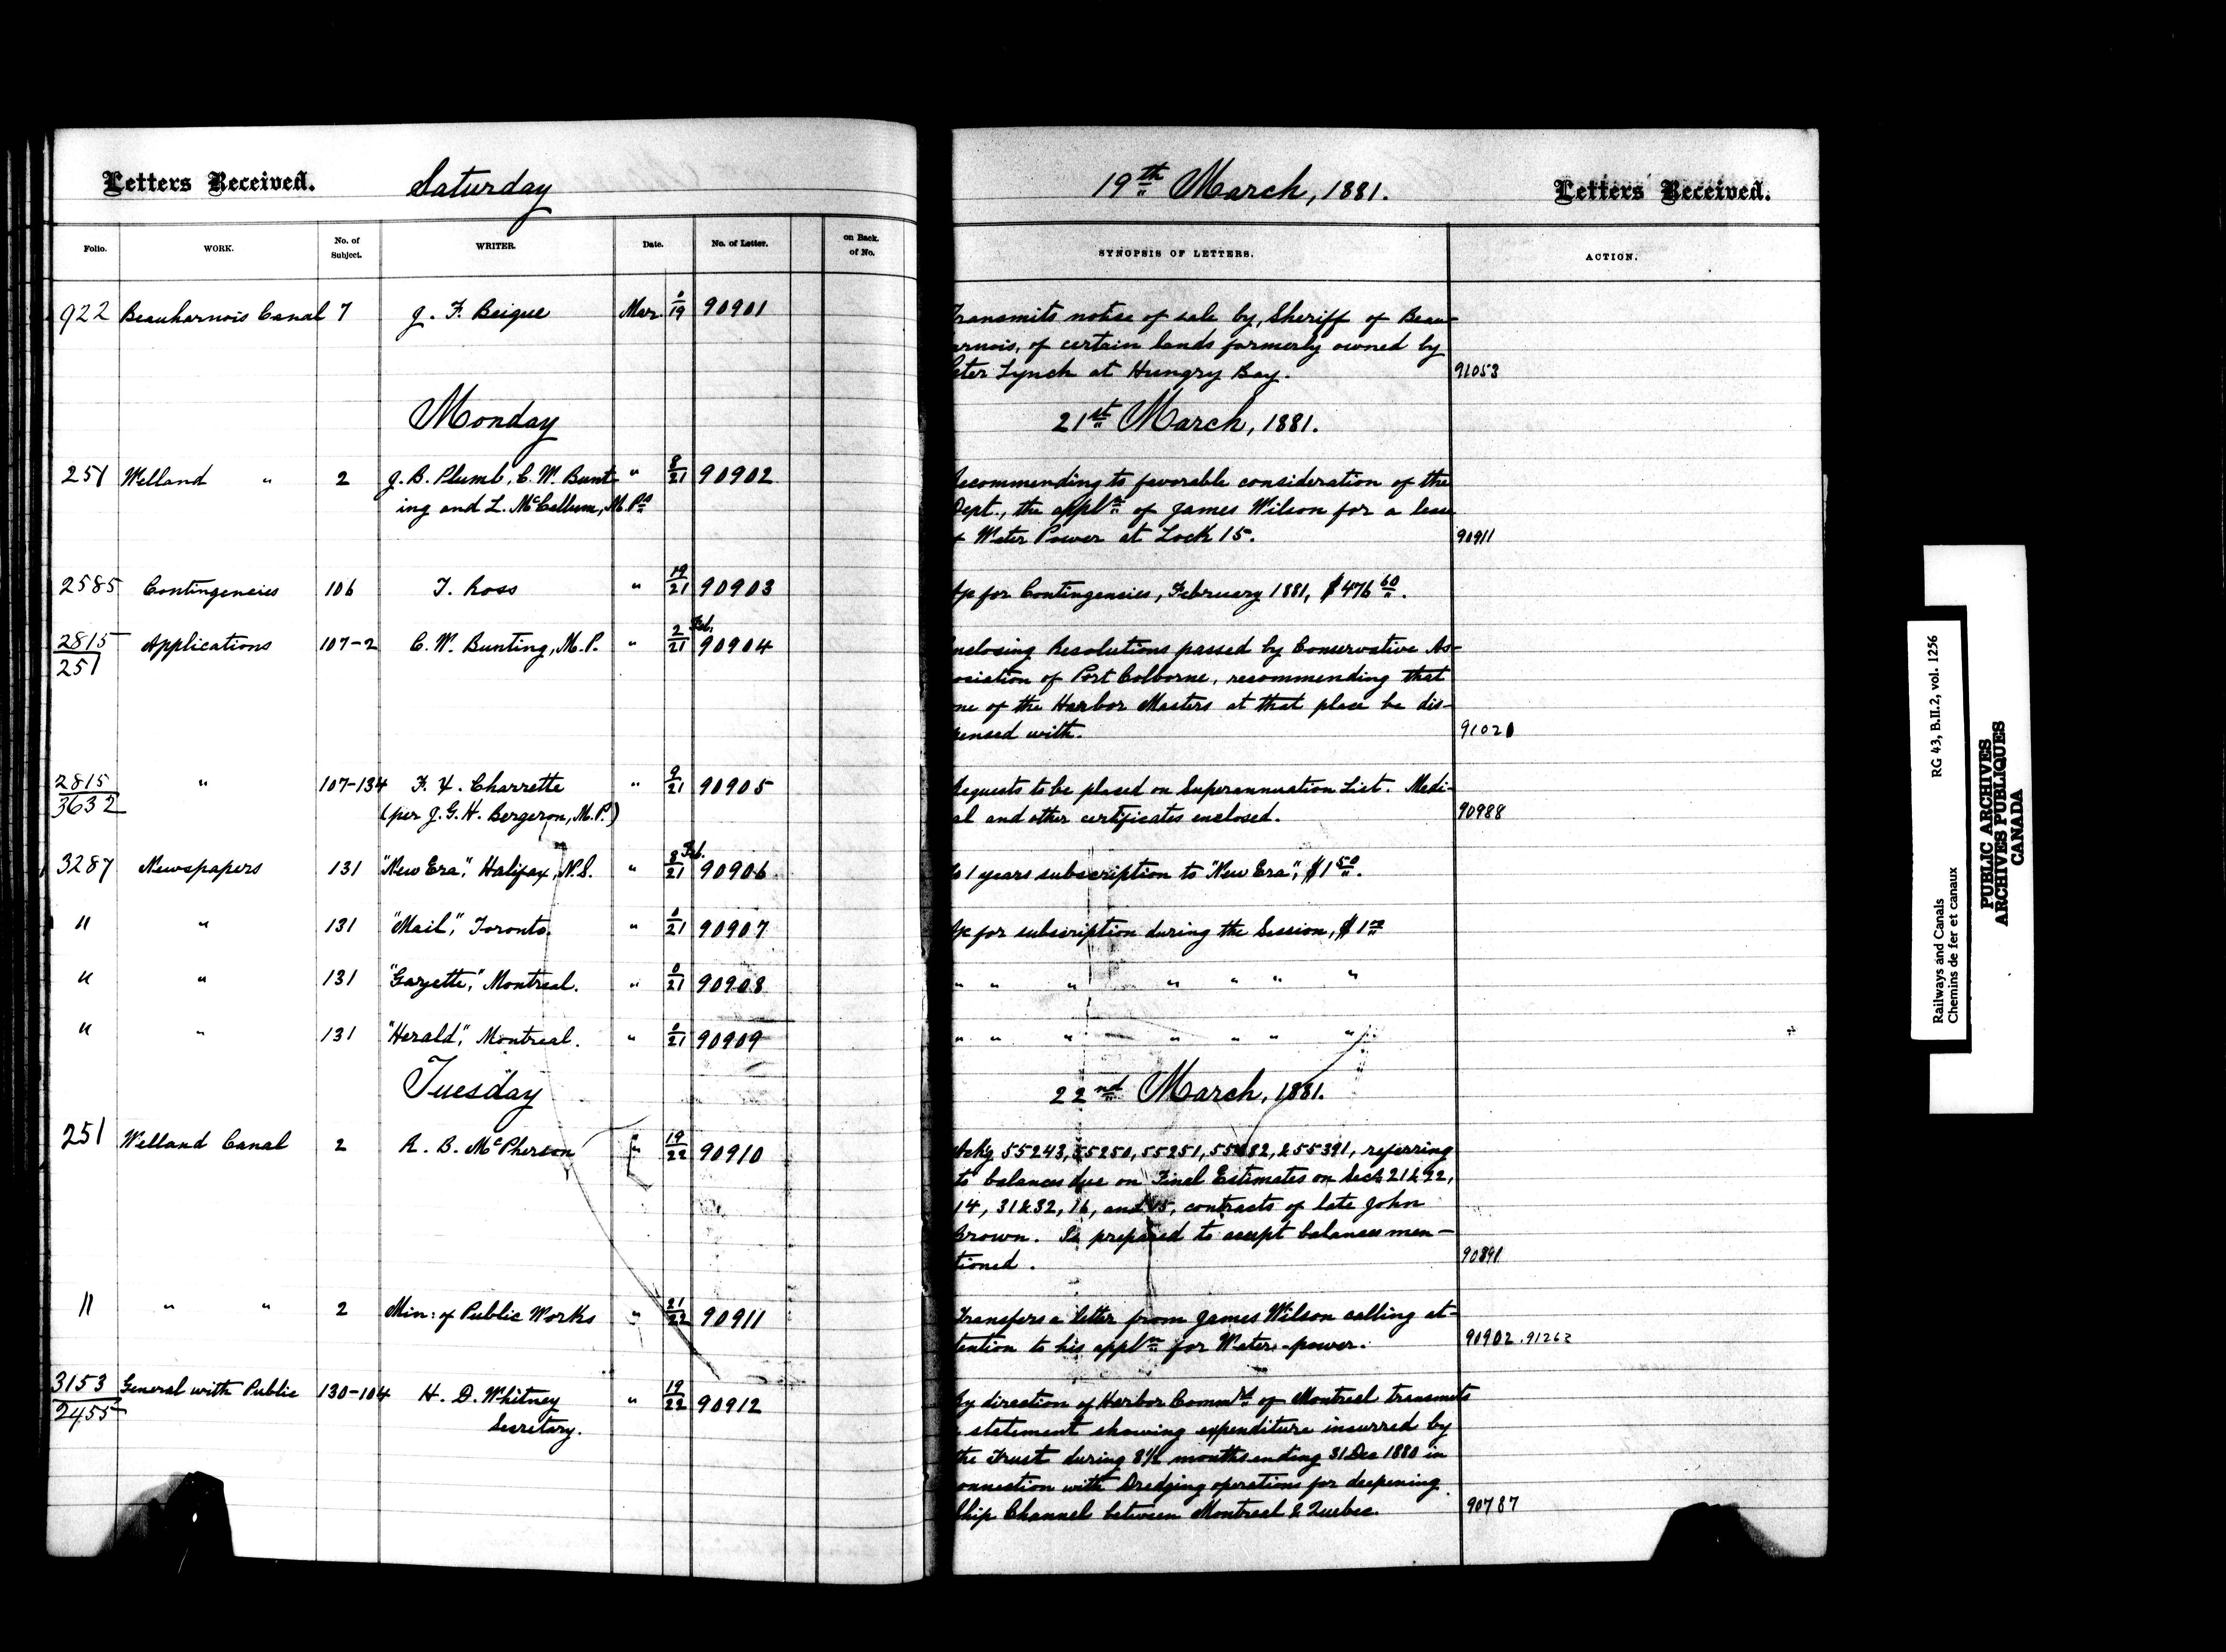 Letters Received. Saturday 19th March, 1881. Letters Received.
Folio. WORK. No. of Subject. WRITER. Date. No. of Letter. on Back. of No. SYNOPSIS OF LETTERS. ACTION.
922 Beauharnois Canal 7 J. F. Beique Mar. 0/19 90901 Transmits notice of sale by Sheriff of Beau-
arnois, of certain lands formerly owned by
eter Lynch at Hungry Bay. 91053
Monday 21st March, 1881.
251 Welland " 2 J. B. Plumb, C. W. Bunt- " 8/21 90902 Recommending to favorable consideration of the
ing and L. McCallum, M.Ps Dept., the appln of James Wilson for a lease
Water Power at Lock 15. 90911
2585 Contingencies 106 T. Ross " 19/21 90903 for Contingencies, February 1881, $476 60.
2815/251 Applications 107-2 C. W. Bunting, M.P. " 2/21 Feb. 90904 nclosing Resolutions passed by Conservative As-
ociation of Port Colborne, recommending that
ne of the Harbor Masters at that place be dis-
pensed with. 91021
2815/3632 " 107-134 F. X. Charrette " 9/21 90905 Requests to be placed on Superannuation List. Medi-
(per J. G. H. Bergeron, M.P.) al and other certificates enclosed. 90988
3287 Newspapers 131 "New Era", Halifax, N.S. " 8/21 Feb. 90906 To 1 years subscription to "New Era", $1 50.
" " 131 "Mail", Toronto. " 0/21 90907 for subscription during the Session, $1 00
" " 131 "Gazette", Montreal. " 0/21 90908 " " " " " " "
" " 131 "Herald", Montreal. " 0/21 90909 " " " " " " "
Tuesday 22nd March, 1881.
251 Welland Canal 2 A. B. McPherson " 19/22 90910 Ackg 55243, 55250, 55251, & 55391, referring
to balances due on Final Estimates on Sects 21 & 22,
14, 31 & 32, 16, and 15, contracts of late John
Brown. Is prepared to accept balances men-
tioned. 90891
" " " 2 Min: of Public Works " 21/22 90911 Transfers a letter from James Wilson calling at-
tention to his appln for Water-power. 90902. 91262
3153/2455 General with Public 130-104 H. D. Whitney " 19/22 90912 By direction of Harbor Commrs of Montreal transmits
Secretary. statement showing expenditure incurred by
the Trust during 8½ months ending 31 Dec 1880 in
onnection with Dredging operations for deepening
Ship Channel between Montreal & Quebec. 90787
Railways and Canals RG 43, B.II.2, vol. 1256
Chemins de fer et canaux
PUBLIC ARCHIVES
ARCHIVES PUBLIQUES
CANADA